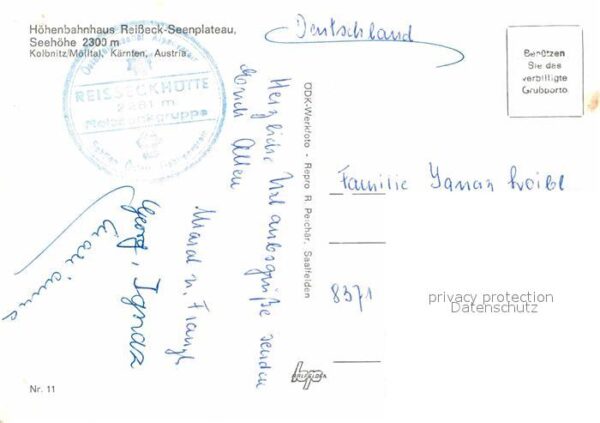 Höhenbahnhaus Reißeck-Seenplateau,
Seehöhe 2300 m
Kolbnitz/Mölltal, Kärnten, Austria.
REISSECKHÜTTE
2281 m
Reisseckgruppe
Deutschland
Benützen
Sie das
verbilligte
Grußporto
Herzliche Urlaubsgrüße senden
Euch Allen
Georg, Ignaz
ODK-Werkfoto - Repro R. Pechar, Saalfelden
Familie
8371
privacy protection
Datenschutz
Nr. 11